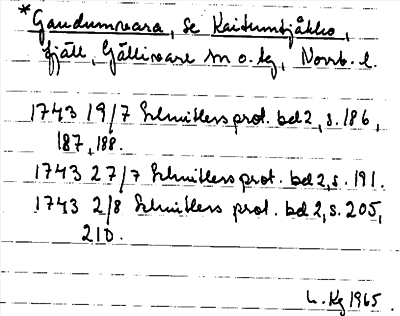 *Gaudumvara, se Kaitumtjåkko,
fjäll, Gällivare sn o. tg, Norrb. l.
1743 19/7 Schnitlers prot. bd 2, s. 186,
187, 188.
1743 27/7 Schnitlers prot. bd 2, s. 191.
1743 2/8 Schnitlers prot. bd 2, s. 205,
210.
L. Kg 1965.